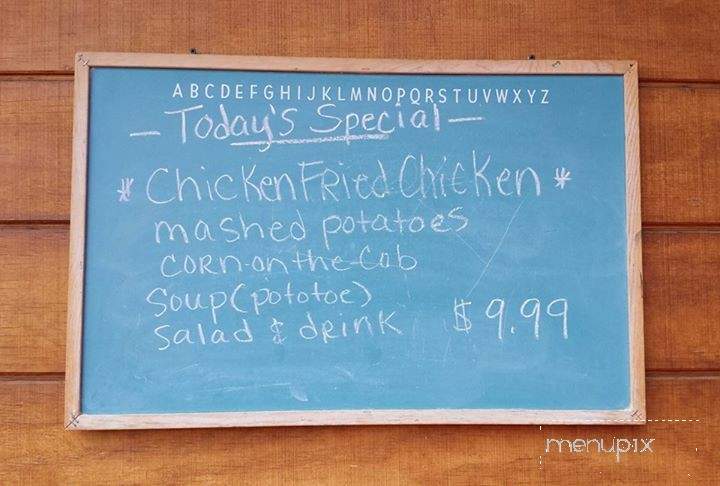 A B C D E F G H I J K L M N O P Q R S T U V W X Y Z
— Today's Special —
* Chicken Fried Chicken *
mashed potatoes
corn-on-the-Cob
Soup (pototoe)
Salad & drink $9.99
menupix